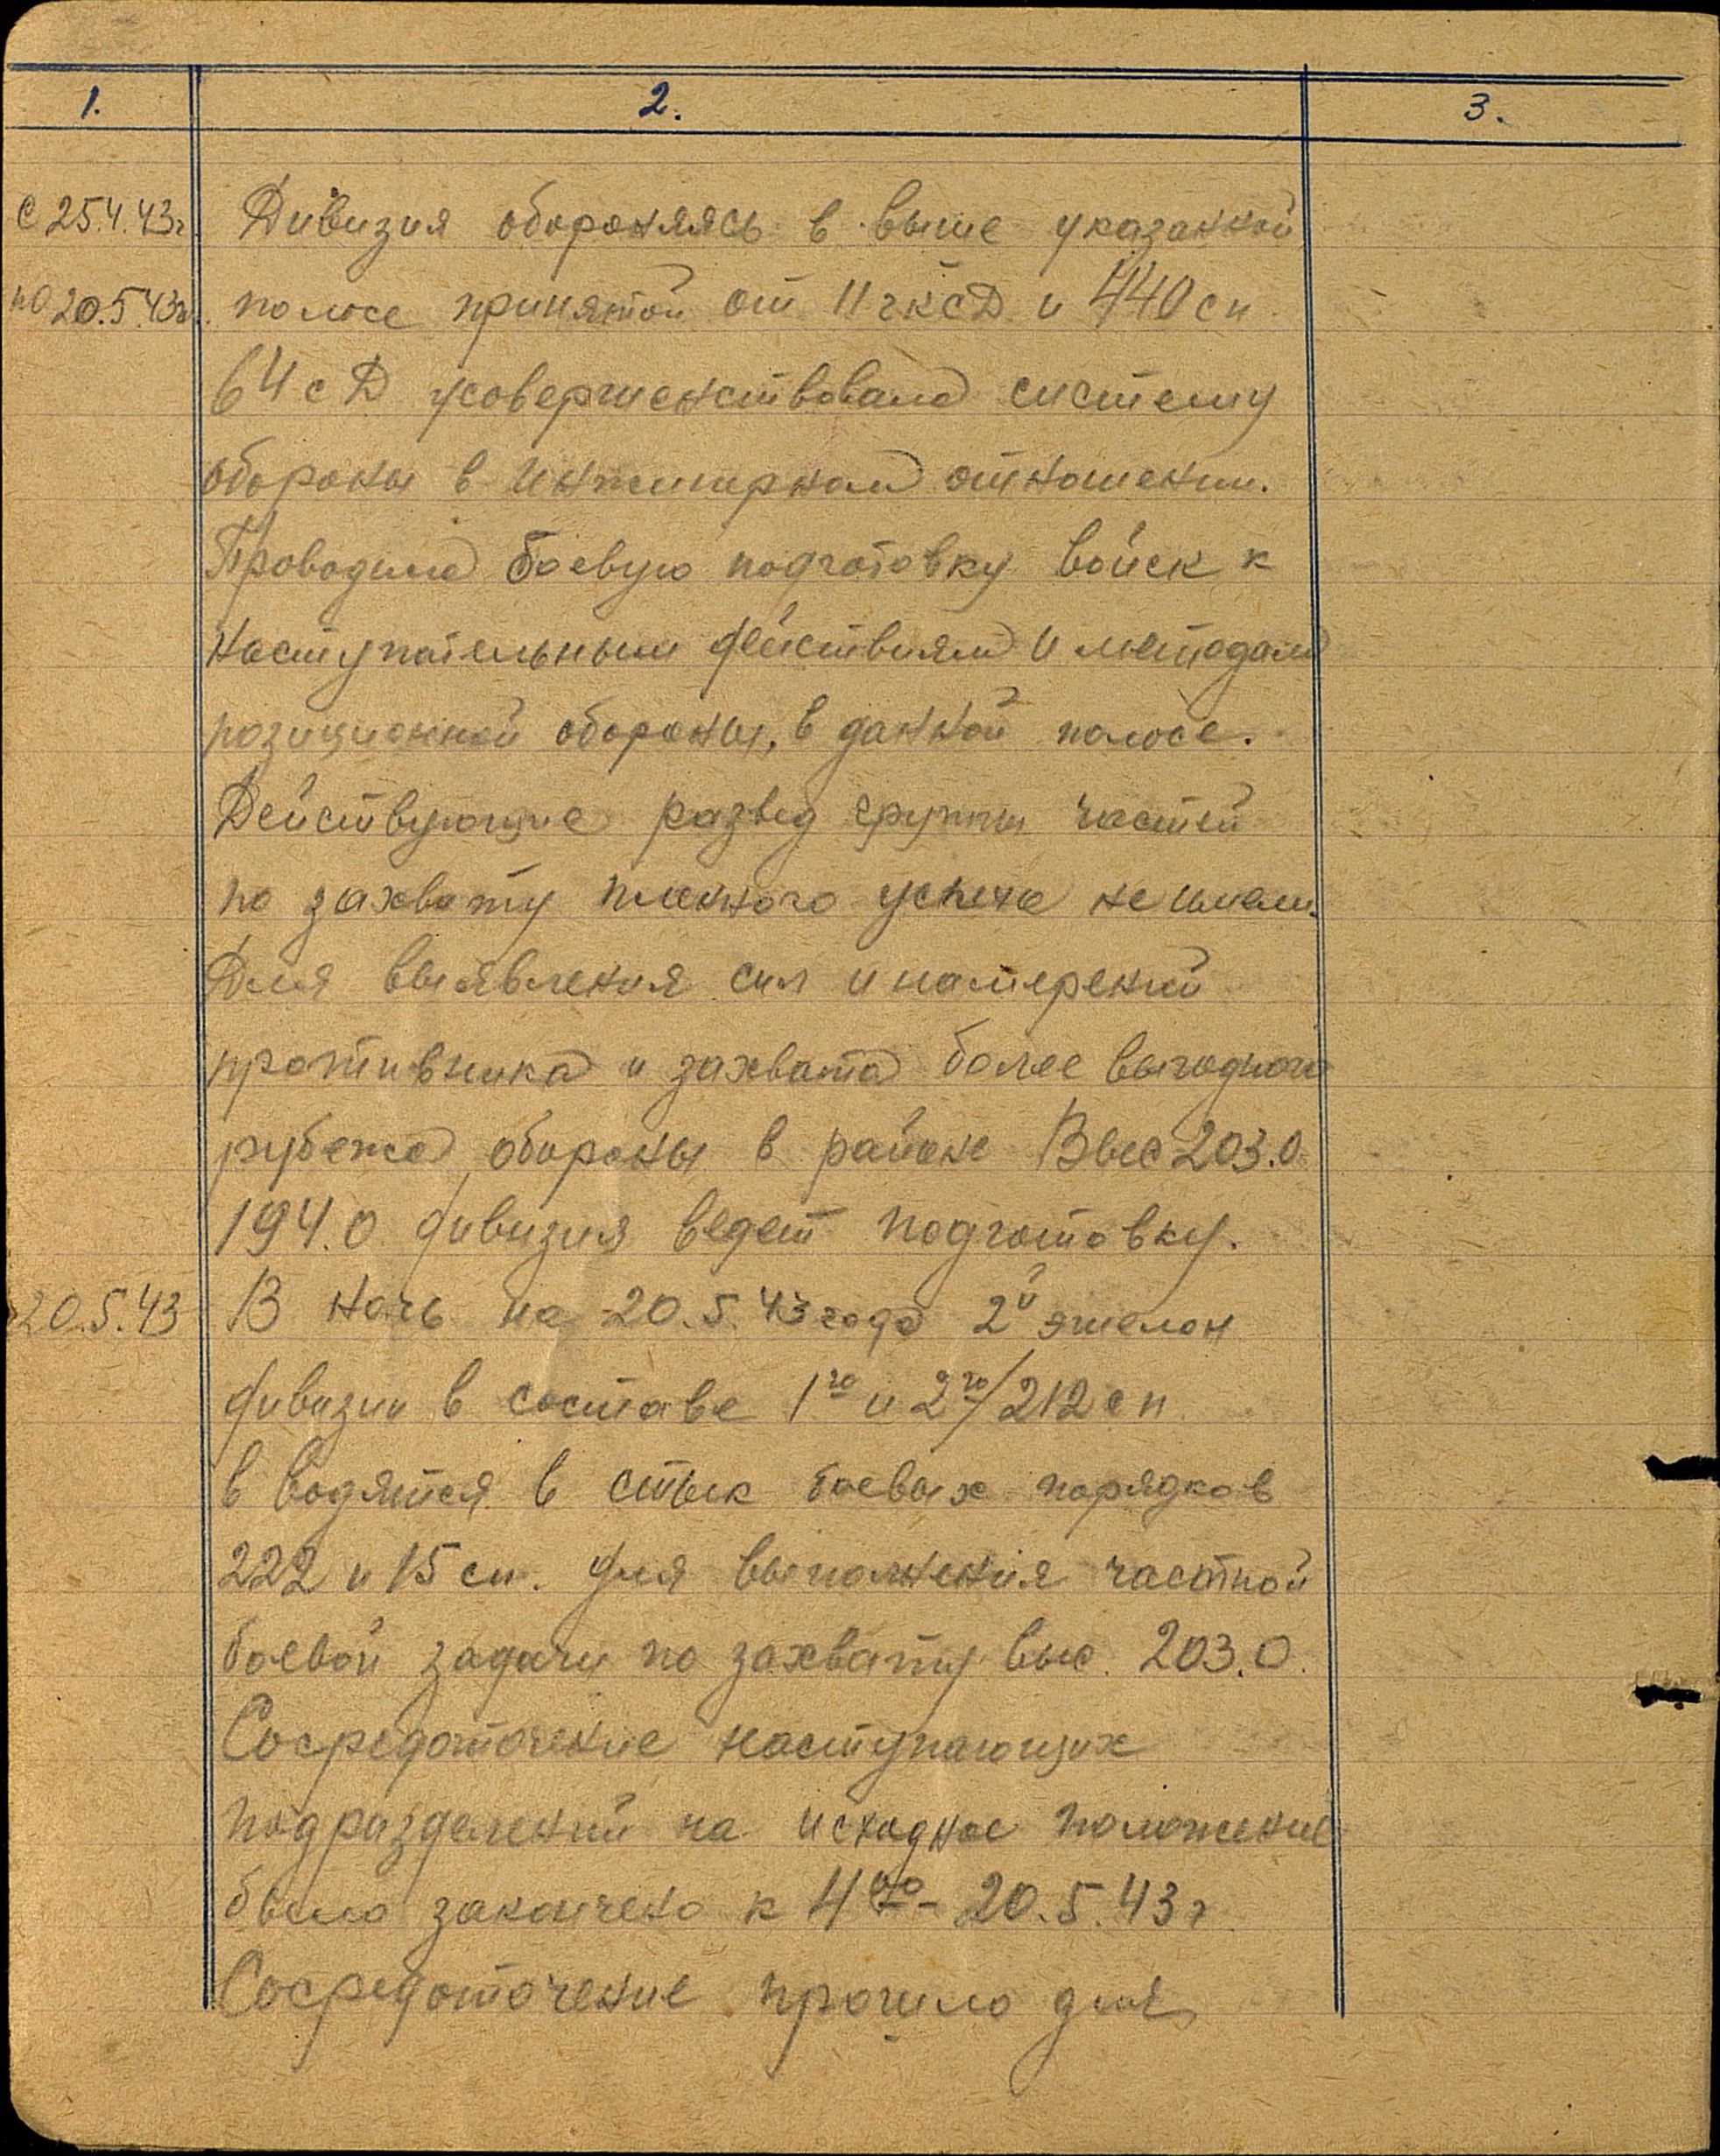 1. 2. 3.
с 25.4.43г Дивизия обороняясь в выше указанной
по 20.5.43г. полосе принятой от 11 гксД и 440 сп
64 сД усовершенствовала систему
обороны в инжинирном отношении.
Проводила боевую подготовку войск к
наступательным действиям и методам
позиционной обороны, в данной полосе.
Действующие развед группы частей
по захвату пленного успеха не имели.
Для выявления сил и намерений
противника и захвата более выгодного
рубежа обороны в районе Выс 203.0
194.0 дивизия ведет подготовку.
20.5.43 В ночь на 20.5.43 года 2й эшелон
дивизии в составе 1го и 2го/212 сп
в водятся в стык боевых порядков
222 и 15 сп. для выполнения частной
боевой задачи по захвату выс. 203.0.
Сосредоточение наступающих
подразделений на исходное положение
было закончено к 4 00 - 20.5.43 г
Сосредоточение прошло для